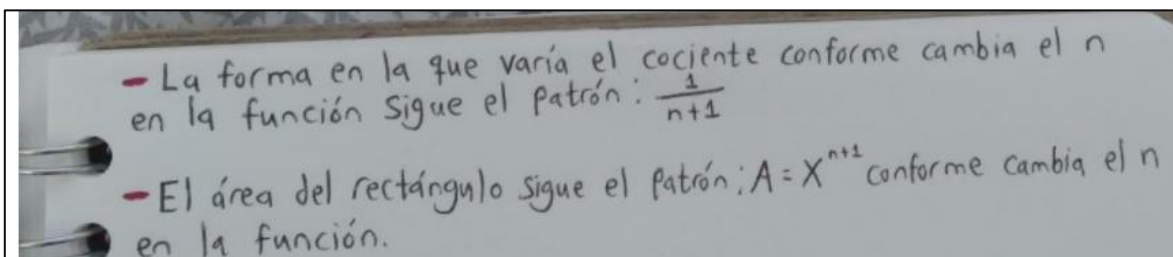 - La forma en la que varía el cociente conforme cambia el n
en la función sigue el patrón: 1/(n+1)
- El área del rectángulo sigue el patrón: A = X^(n+1) conforme cambia el n
en la función.